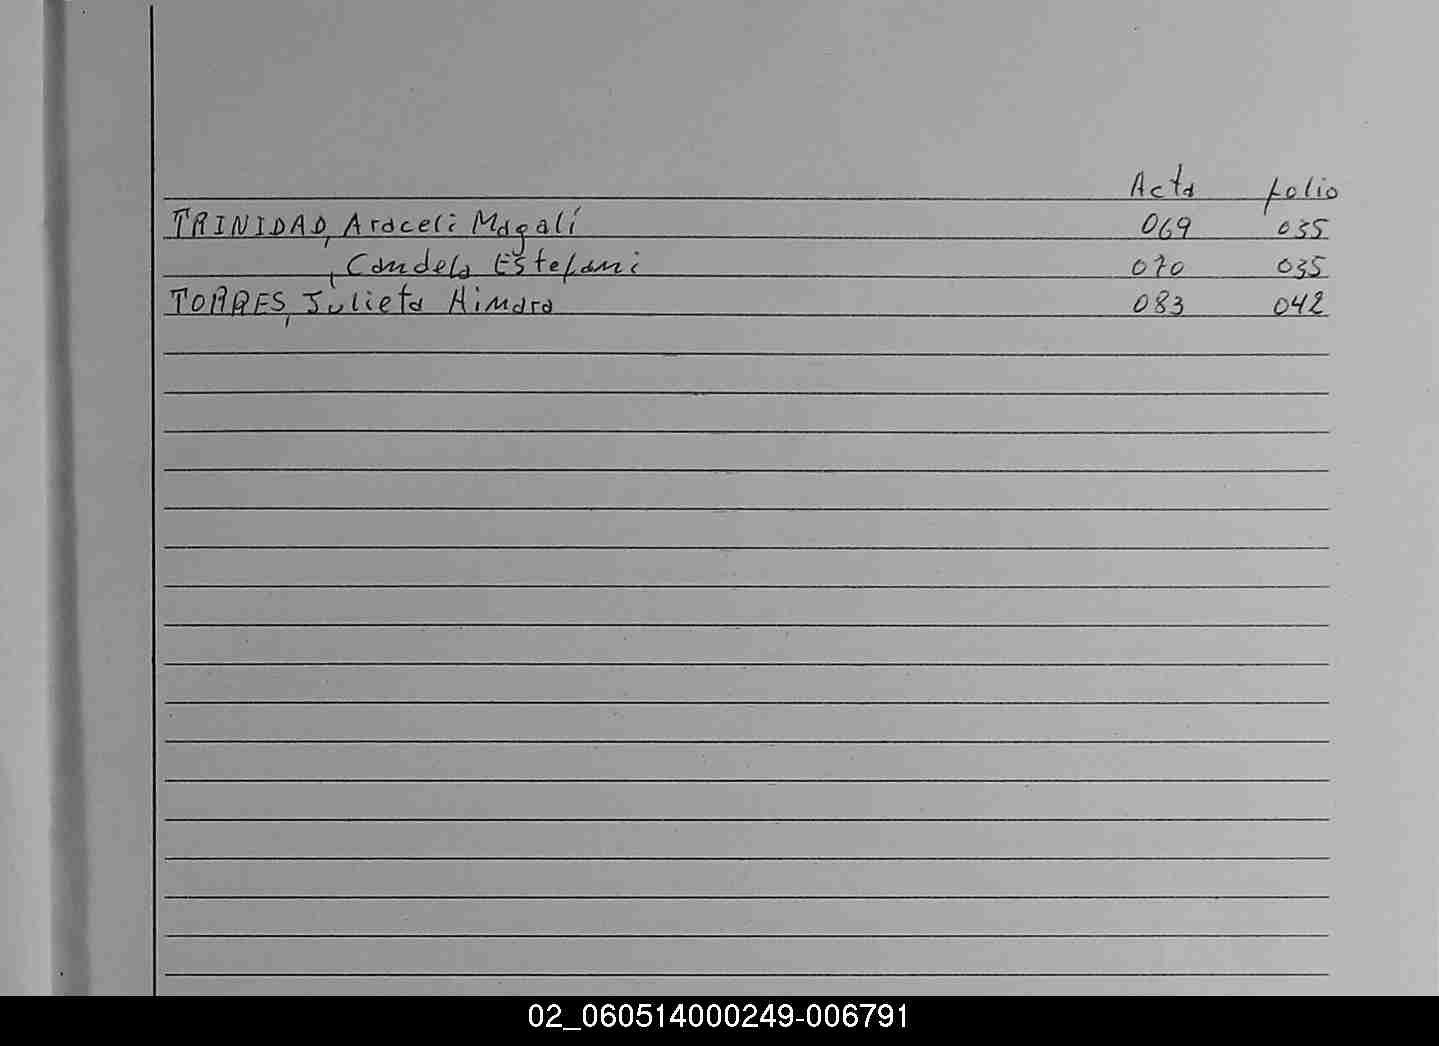 Acta folio
TRINIDAD, Araceli Magalí 069 035
, Candela Estefani 070 035
TORRES, Julieta Aimara 083 042
02_060514000249-006791